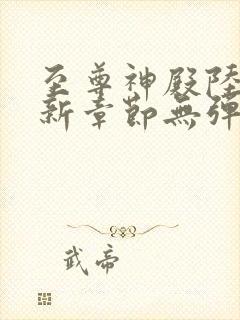 至尊神殿陸
新章節無彈
武帝